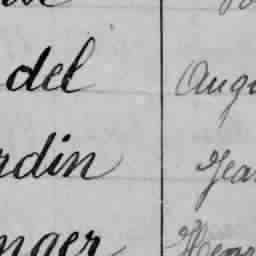 del Augu
rdin Jea
nger Henr